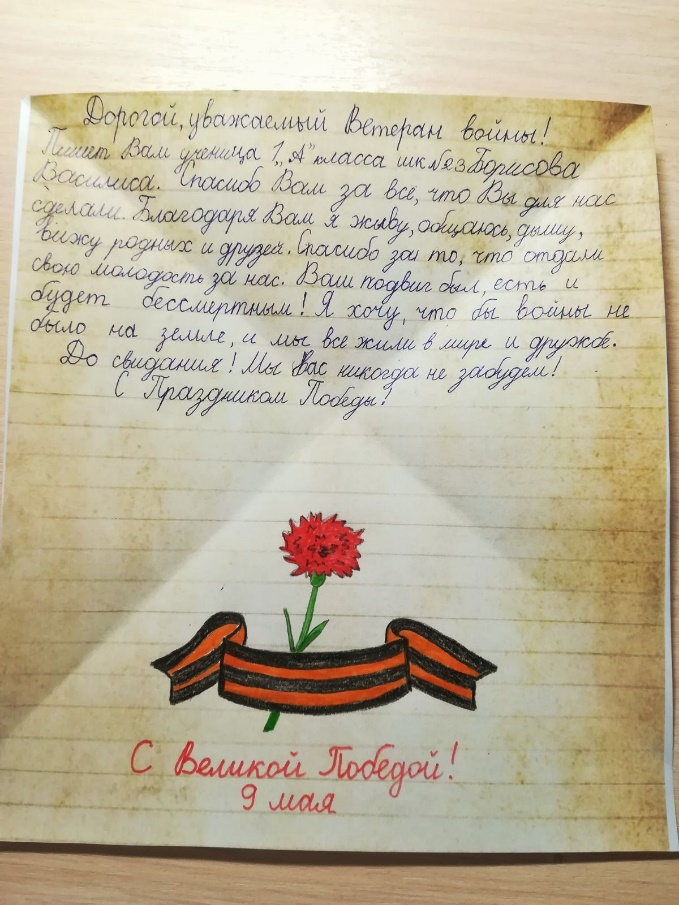 Дорогой, уважаемый Ветеран войны!
Пишет Вам ученица 1 „А" класса шк №53 Борисова
Василиса. Спасибо Вам за все, что Вы для нас
сделали. Благодаря Вам я живу, общаюсь, дышу,
вижу родных и друзей. Спасибо за то, что отдали
свою молодость за нас. Ваш подвиг был, есть и
будет бессмертным! Я хочу, что бы войны не
было на земле, и мы все жили в мире и дружбе.
До свидания! Мы Вас никогда не забудем!
С Праздником Победы!
С Великой Победой!
9 мая